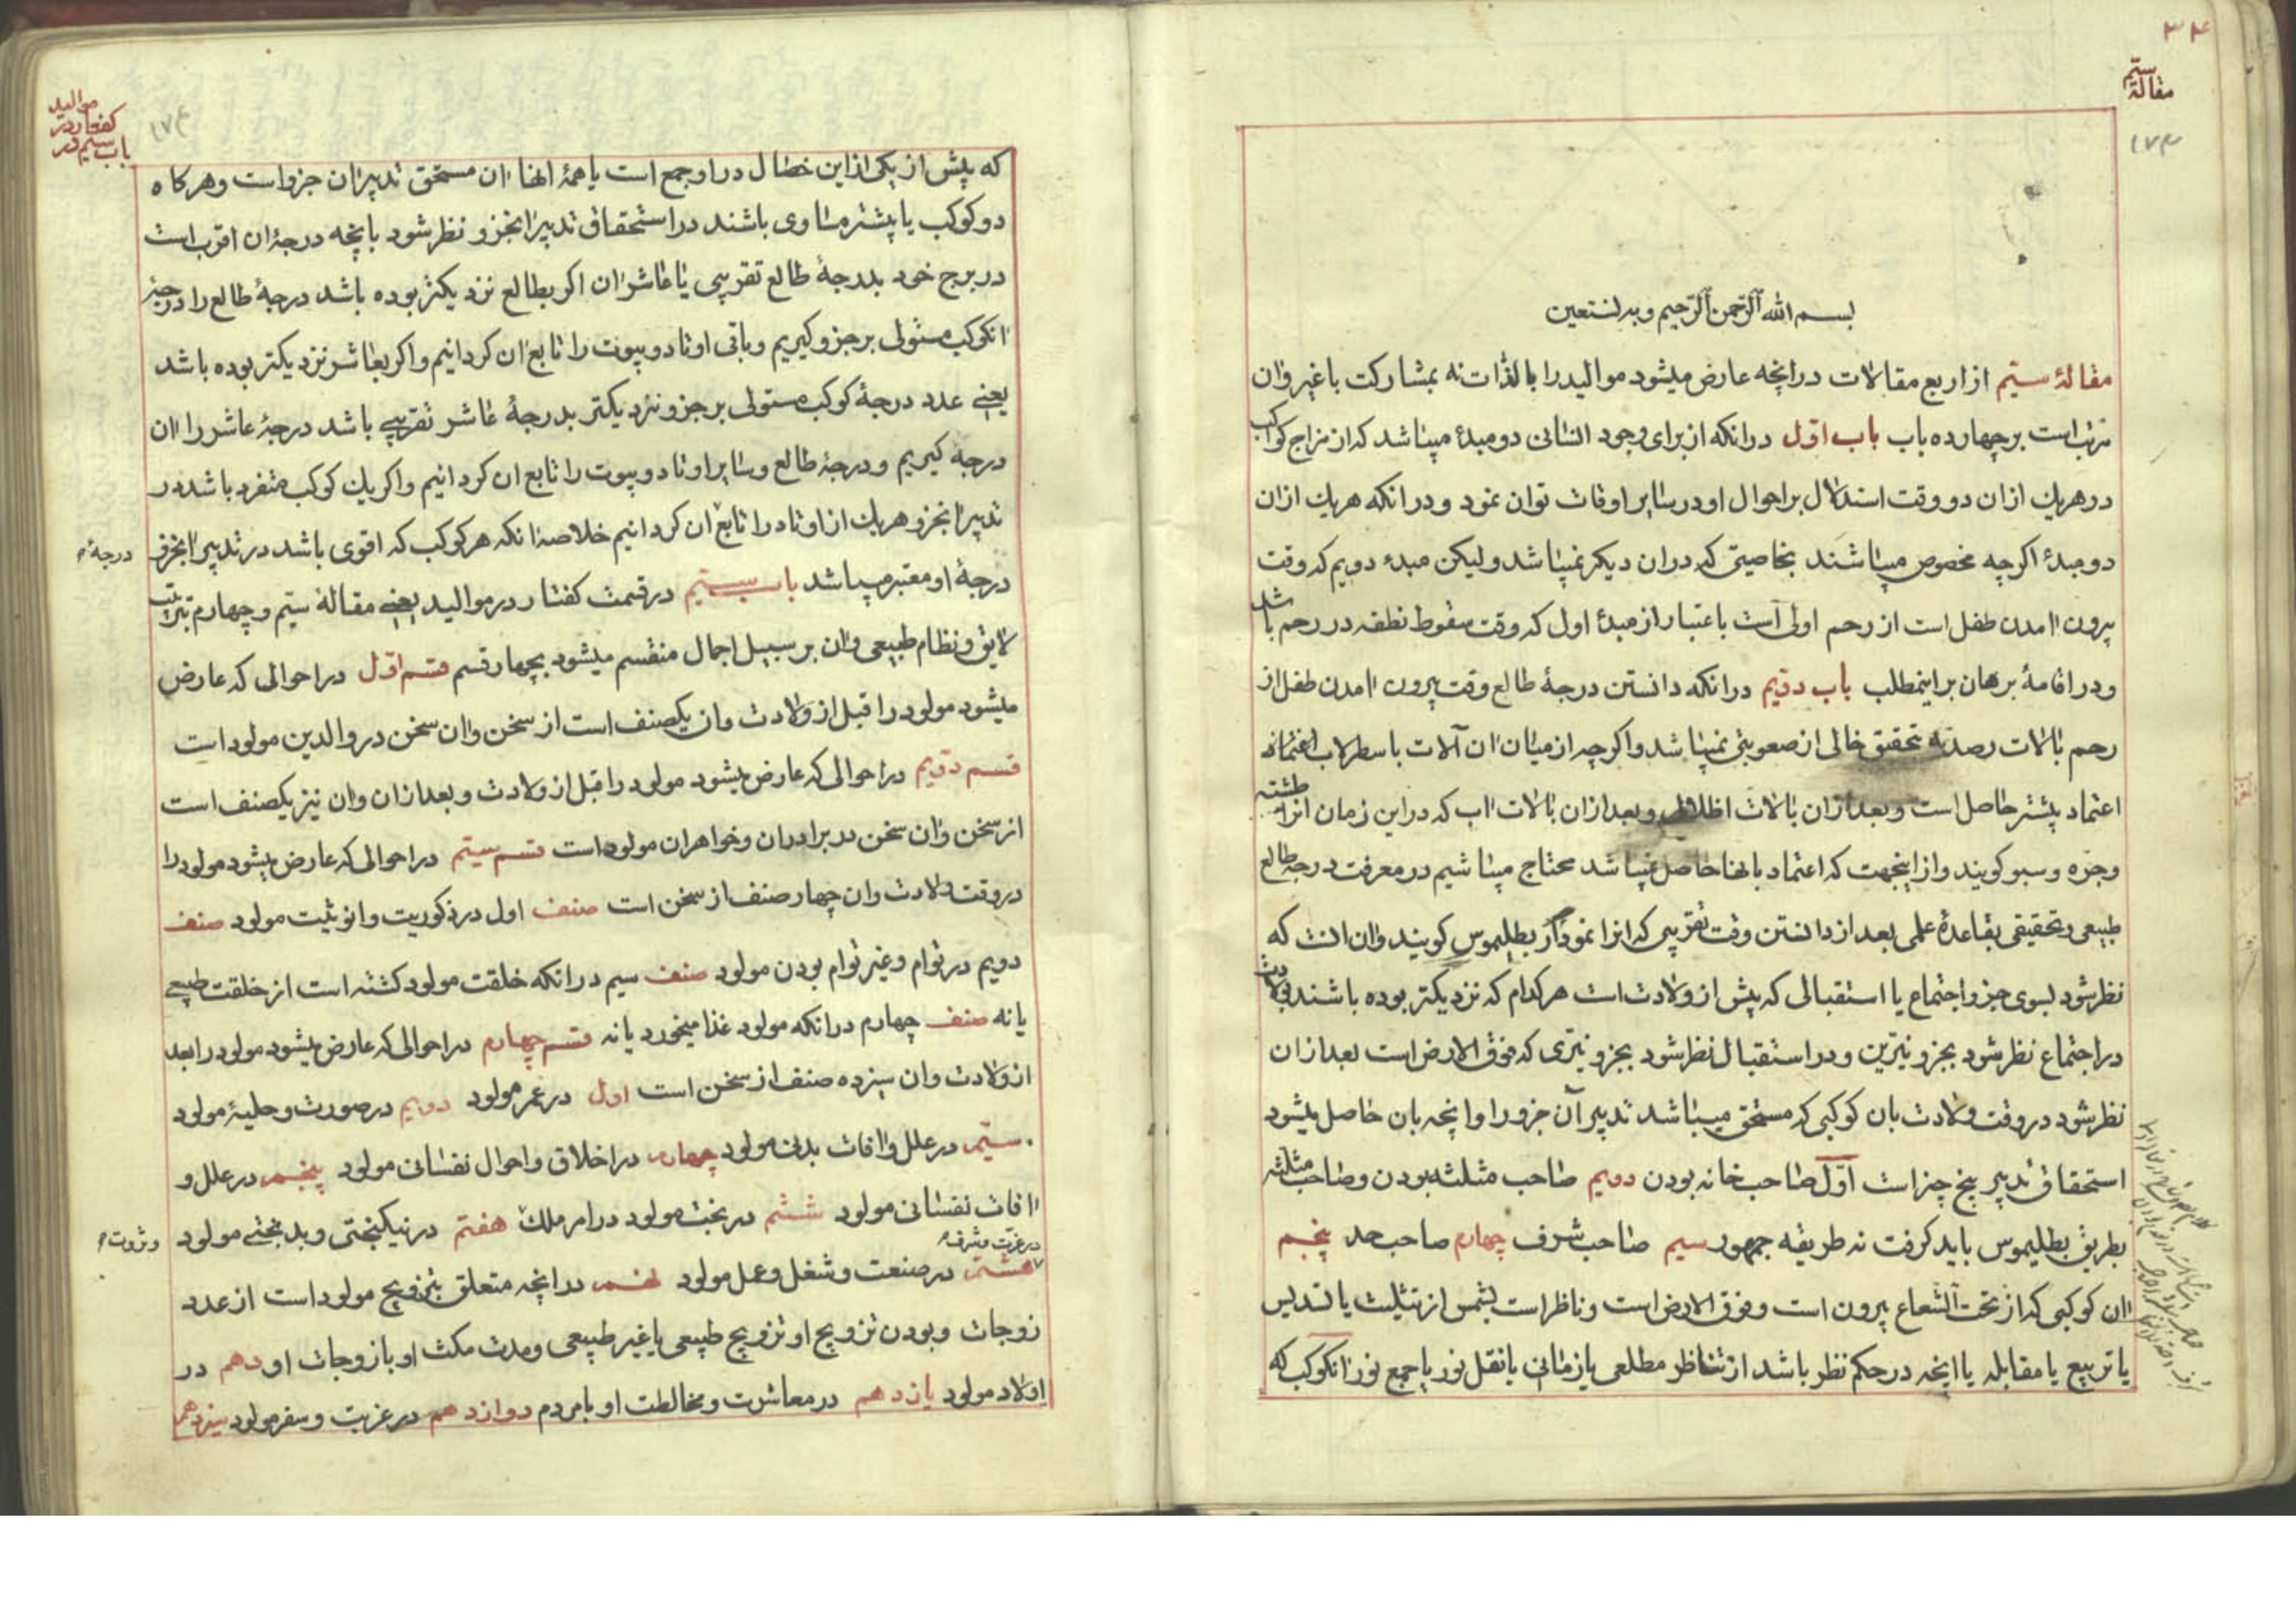 ۳۴
مقالهٔ سیّم
۱۷۳
بسم الله الرّحمن الرّحیم وبه نستعین
مقالهٔ سیّم از اربع مقالات در انچه عارض میشود موالید را بالذات نه بمشارکت با غیر و ان
مرتب است بر چهارده باب باب اوّل در انکه از برای وجود انسانی دو مبدأ میباشد که از مزاج کواکب
در هریک از ان دو وقت استدلال بر احوال او در سایر اوقات توان نمود و در انکه هریک از ان
دو مبدأ اکرچه مخصوص میباشند بخاصیتی که در ان دیکر نمیباشد ولیکن مبدء دویم که وقت
بیرون امدن طفل است از رحم اولی است باعتبار از مبدأ اول که وقت سقوط نطفه در رحم باشد
و در اقامهٔ برهان بر اینمطلب باب دوّیم در انکه دانستن درجهٔ طالع وقت بیرون امدن طفل از
رحم بالات رصدیه تحقیق خالی از صعوبتی نمیباشد و اکرچه از میان ان آلات باسطرلاب
اعتماد بیشتر حاصل است و بعد از ان بالات اظلال و بعد از ان بالات اب که در این زمان انرا طشته
وجرّه و سبو کویند و از اینجهت که اعتماد بانها حاصل نمیباشد محتاج میباشیم در معرفت درجهٔ طالع
طبیعی و تحقیقی بقاعدهٔ علمی بعد از دانستن وقت تقریبی که انرا نمودار بطلیموس کویند و ان انست که
نظر شود بسوی جزو اجتماع یا استقبالی که پیش از ولادت است هرکدام که نزدیکتر بوده باشند بولادت
در اجتماع نظر شود بجزو نیّرین و در استقبال نظر شود بجزو نیّری که فوق الارض است بعد از ان
نظر شود در وقت ولادت بان کوکبی که مستحق میباشد تدبیر آن جزو را و انچه بان حاصل میشود
استحقاق تدبیر پنج چیز است اوّل صاحب خانه بودن دویم صاحب مثلثه بودن و صاحب مثلثه
بطریق بطلیموس باید کرفت نه طریقه جمهور سیم صاحب شرف چهارم صاحب حد پنجم
ان کوکبی که از تحت الشعاع بیرون است و فوق الارض است و ناظر است بشمس از تثلیث یا تسدیس
یا تربیع یا مقابله یا انچه در حکم نظر باشد از تناظر مطلعی یا زمانی یا نقل نور یا جمع نور انکوکب که
موالید
کفتار در
باب سیم در
۱۷۴
که پیش از یکی از این خصال در او جمع است یا همهٔ انها ان مستحق تدبیر ان جزو است و هرکاه
دو کوکب یا بیشتر مساوی باشند در استحقاق تدبیر انجزو نظر شود بانچه درجهٔ ان اقرب است
در برج خود بدرجهٔ طالع تقریبی یا عاشر ان اکر بطالع نزدیکتر بوده باشد درجهٔ طالع را درجهٔ
انکوکب مستولی بر جزو کیریم و باقی اوتاد و بیوت را تابع ان کردانیم و اکر بعاشر نزدیکتر بوده باشد
یعنی عدد درجهٔ کوکب مستولی بر جزو نزدیکتر بدرجهٔ عاشر تقریبی باشد درجهٔ عاشر را ان
درجه کیریم و درجهٔ طالع و سایر اوتاد و بیوت را تابع ان کردانیم و اکر یک کوکب منفرد باشد در
تدبیر انجزو هریک از اوتاد را تابع ان کردانیم خلاصه انکه هر کوکب که اقوی باشد در تدبیر انجزو
درجه
درجهٔ او معتبر میباشد باب سیّم در قسمت کفتار در موالید یعنی مقالهٔ سیّم و چهارم بترتیب
لایق و نظام طبیعی و ان بر سبیل اجمال منقسم میشود بچهار قسم قسم اوّل در احوالی که عارض
میشود مولود را قبل از ولادت و ان یکصنف است از سخن و ان سخن در والدین مولود است
قسم دوّیم در احوالی که عارض میشود مولود را قبل از ولادت و بعد از ان و ان نیز یکصنف است
از سخن و ان سخن در برادران و خواهران مولود است قسم سیّم در احوالی که عارض میشود مولود را
در وقت ولادت و ان چهار صنف از سخن است صنف اول در ذکوریت و انوثیت مولود صنف
دویم در توام و غیر توام بودن مولود صنف سیم در انکه خلقت مولود کشته است از خلقت طبیعی
یا نه صنف چهارم در انکه مولود غذا میخورد یا نه قسم چهارم در احوالی که عارض میشود مولود را بعد
از ولادت و ان سیزده صنف از سخن است اول در عمر مولود دویم در صورت و حلیهٔ مولود
سیّم در علل و افات بدنی مولود چهارم در اخلاق و احوال نفسانی مولود پنجم در علل و
افات نفسانی مولود ششم در بخت مولود در امر ملک هفتم در نیکبختی و بدبختی مولود
و ثروت
در عزت و شرف
هشتم در صنعت و شغل و عمل مولود نهم در انچه متعلق بتزویج مولود است از عدد
زوجات و بودن تزویج او تزویج طبیعی یا غیر طبیعی و مدت مکث او با زوجات او دهم در
اولاد مولود یازدهم در معاشرت و مخالطت او با مردم دوازدهم در غربت و سفر مولود سیزدهم